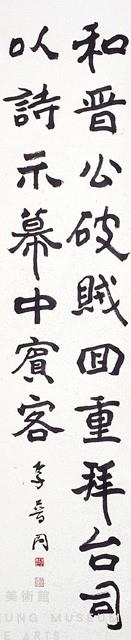 和晋公破賊回重拜台司
以詩示幕中賓客
李普同
美術館
UNG MUSEUM
E ARTS